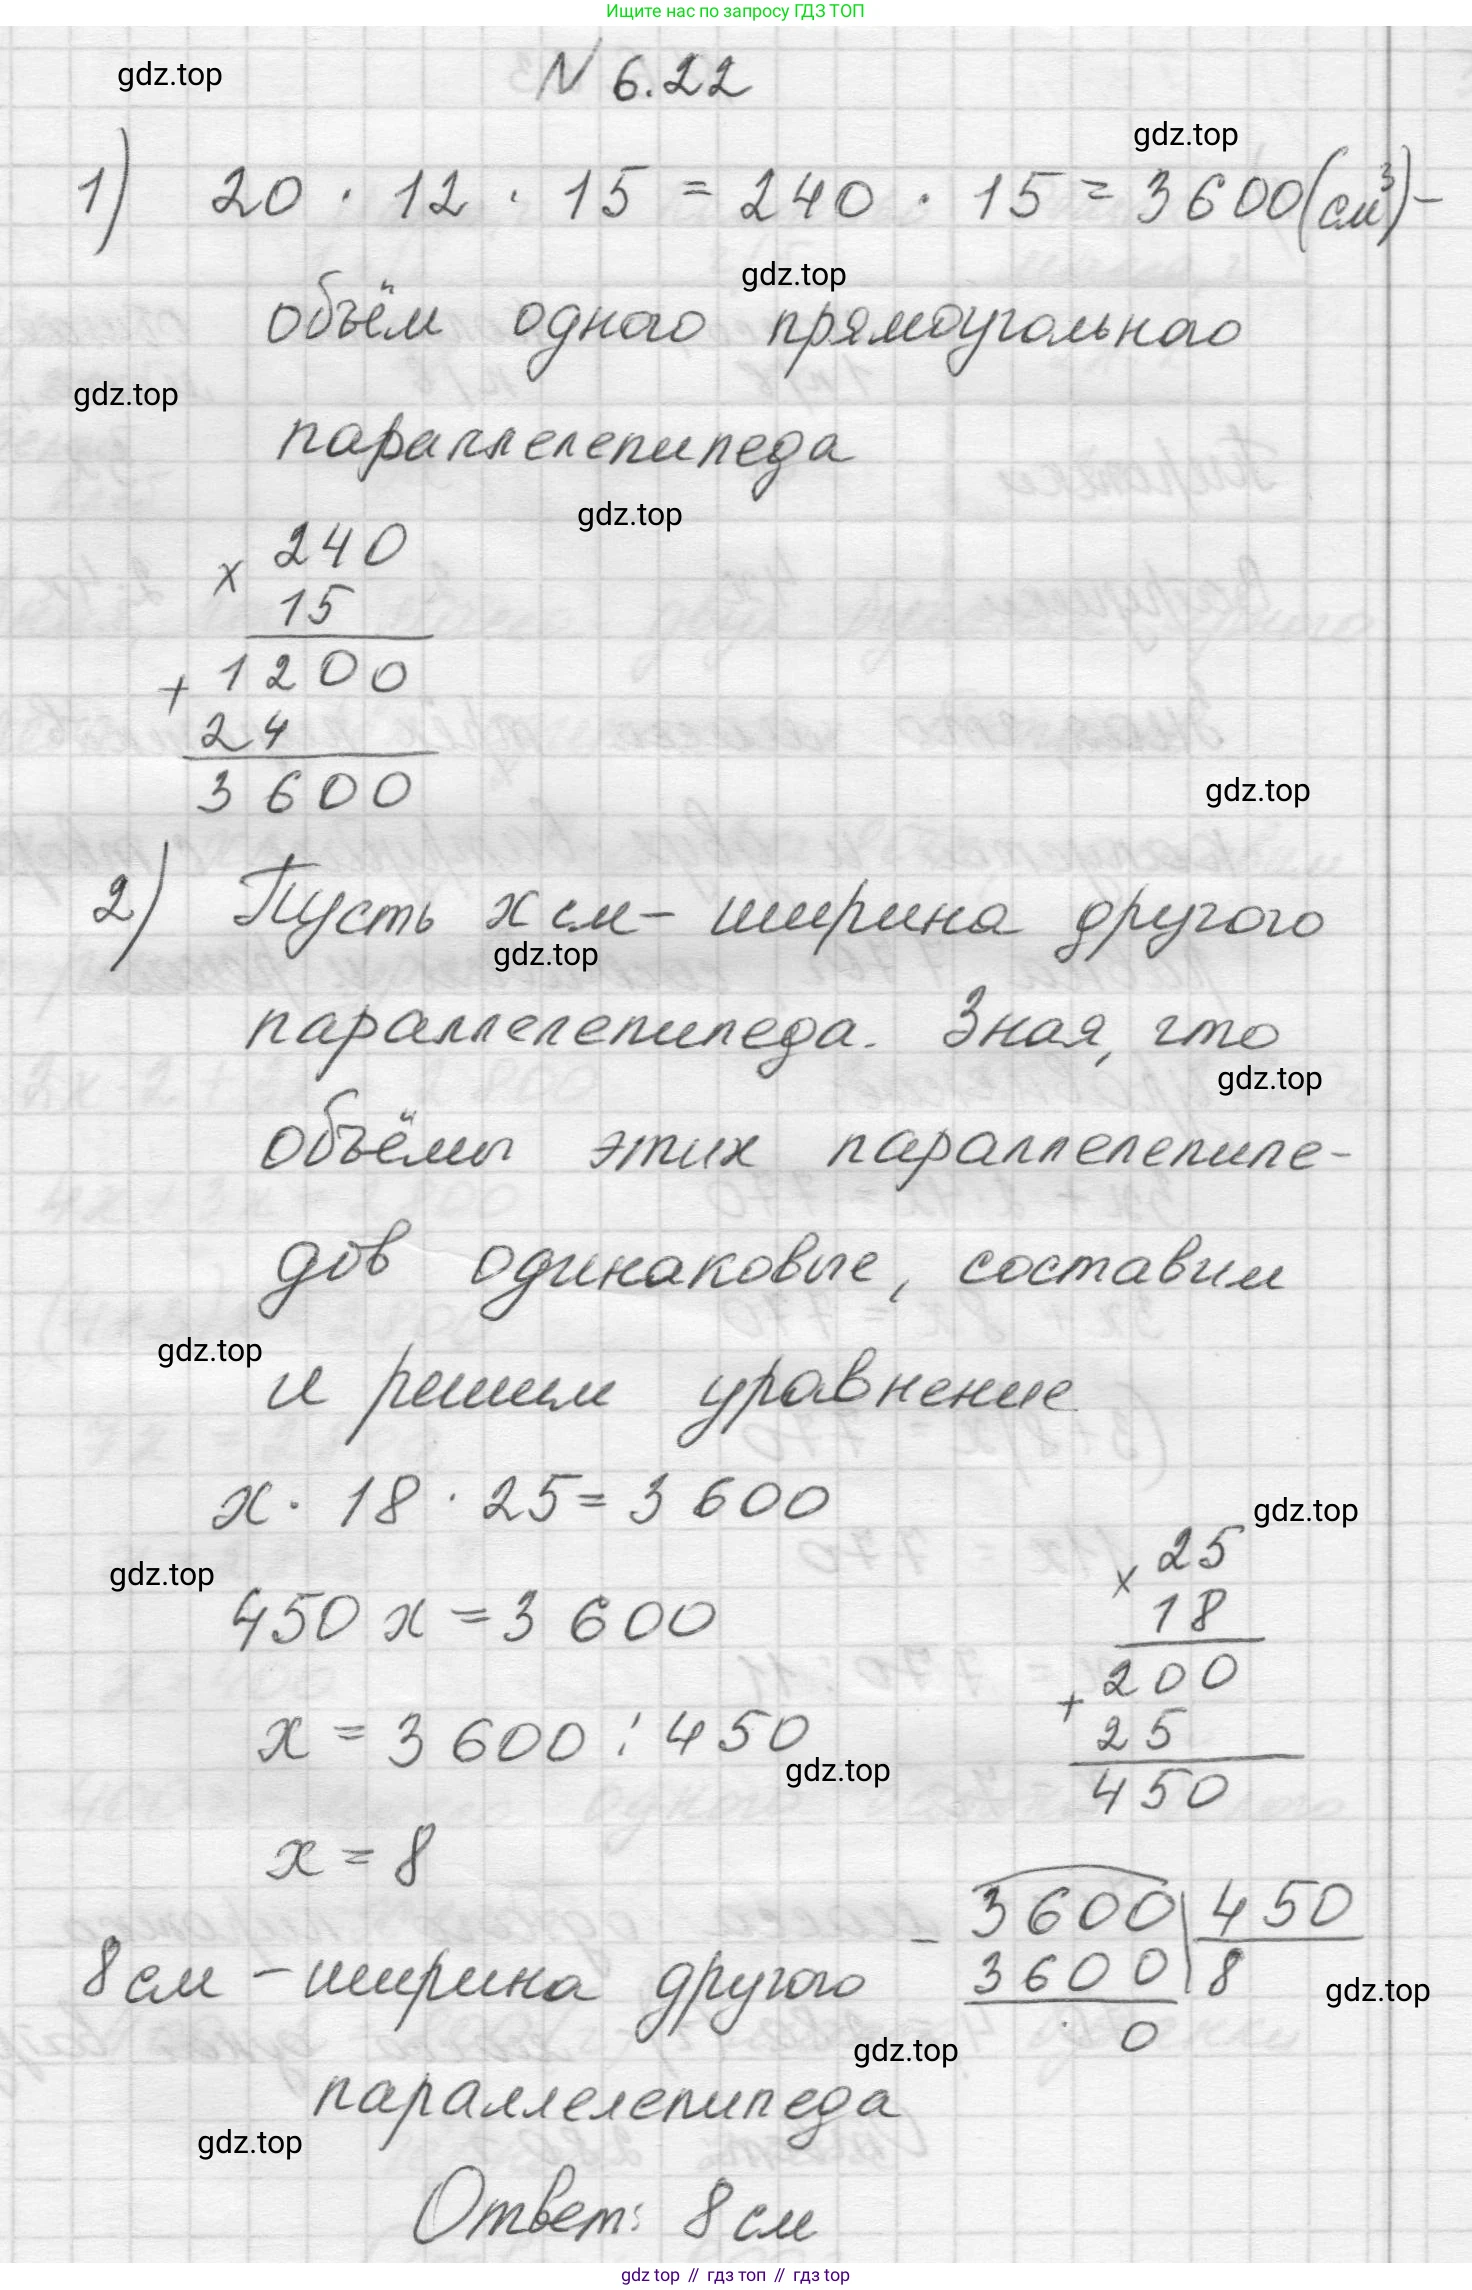 Ищите нас по запросу ГДЗ ТОП
gdz.top
N 6.22
gdz.top
1) 20 · 12 · 15 = 240 · 15 = 3600(см³)-
gdz.top
объём одного прямоугольного
gdz.top
параллелепипеда
gdz.top
× 240
15
+ 1200
24
3600
gdz.top
2) Пусть x см - ширина другого
gdz.top
параллелепипеда. Зная, что
gdz.top
объёмы этих параллелепипе-
дов одинаковые, составим
gdz.top
и решим уравнение
x · 18 · 25 = 3600
gdz.top
gdz.top
450 x = 3600
x = 3600 : 450
gdz.top
x = 8
× 25
18
+ 200
25
450
- 3600 450
3600 8
0
gdz.top
8 см - ширина другого
gdz.top
параллелепипеда
gdz.top
Ответ: 8 см
gdz top // гдз топ // gdz top